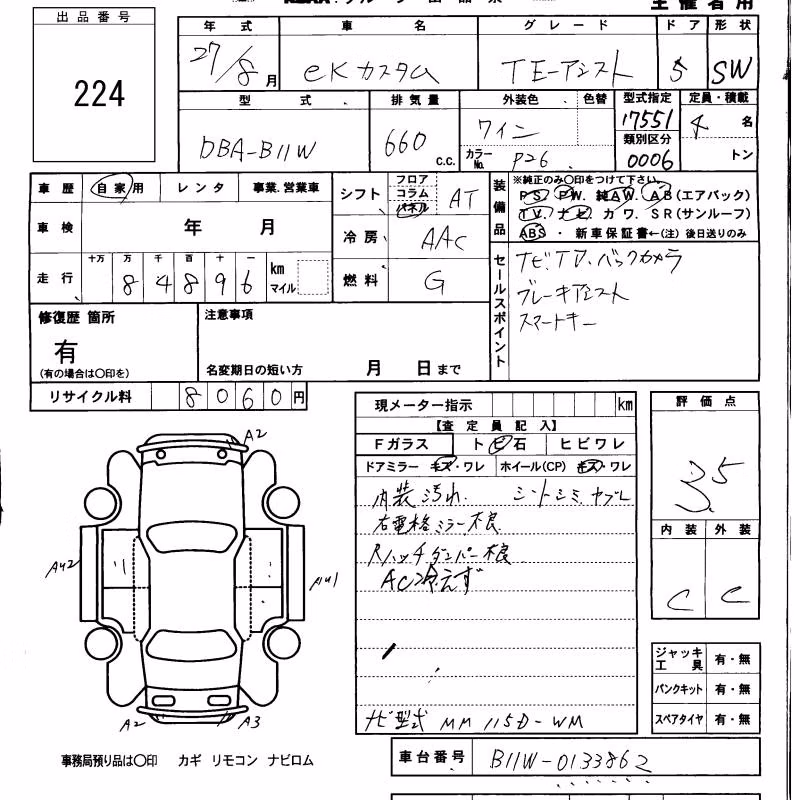 主催者用
出品番号
224
年式 車名 グレード ドア 形状
27/8月 eKカスタム TE-アシスト 5 SW
型式 排気量 外装色 色替 型式指定 定員・積載
DBA-B11W 660 c.c. ワイン 17551 4 名
カラーNo. P26 類別区分 0006 トン
車歴 自家用 レンタ 事業.営業車
車検 年 月
走行 十万 万 千 百 十 一 km マイル
84896
シフト フロア コラム パネル AT
冷房 AAC
燃料 G
装備品 ※純正のみ〇印をつけて下さい。
PS. PW. 純AW. AB(エアバック)
TV. ナビ. カワ. SR(サンルーフ)
ABS ・ 新車保証書←(注) 後日送りのみ
セールスポイント
ナビ.TV.バックカメラ
ブレーキアシスト
スマートキー
修復歴 箇所
有
(有の場合は〇印を)
注意事項
名変期日の短い方 月 日まで
リサイクル料 8060円
現メーター指示 km
【査定員記入】
Fガラス トビ石 ヒビワレ
ドアミラー キズ・ワレ ホイール(CP) キズ・ワレ
内装汚れ. シートシミ.ヤブレ
右電格ミラー不良
Rハッチダンパー不良
AC冷えず
ナビ型式 MM115D-WM
評価点
3.5
内装 外装
C C
A2
AU2
AU1
A2
A3
ジャッキ工具 有・無
パンクキット 有・無
スペアタイヤ 有・無
事務局預り品は〇印 カギ リモコン ナビロム
車台番号 B11W-0133862